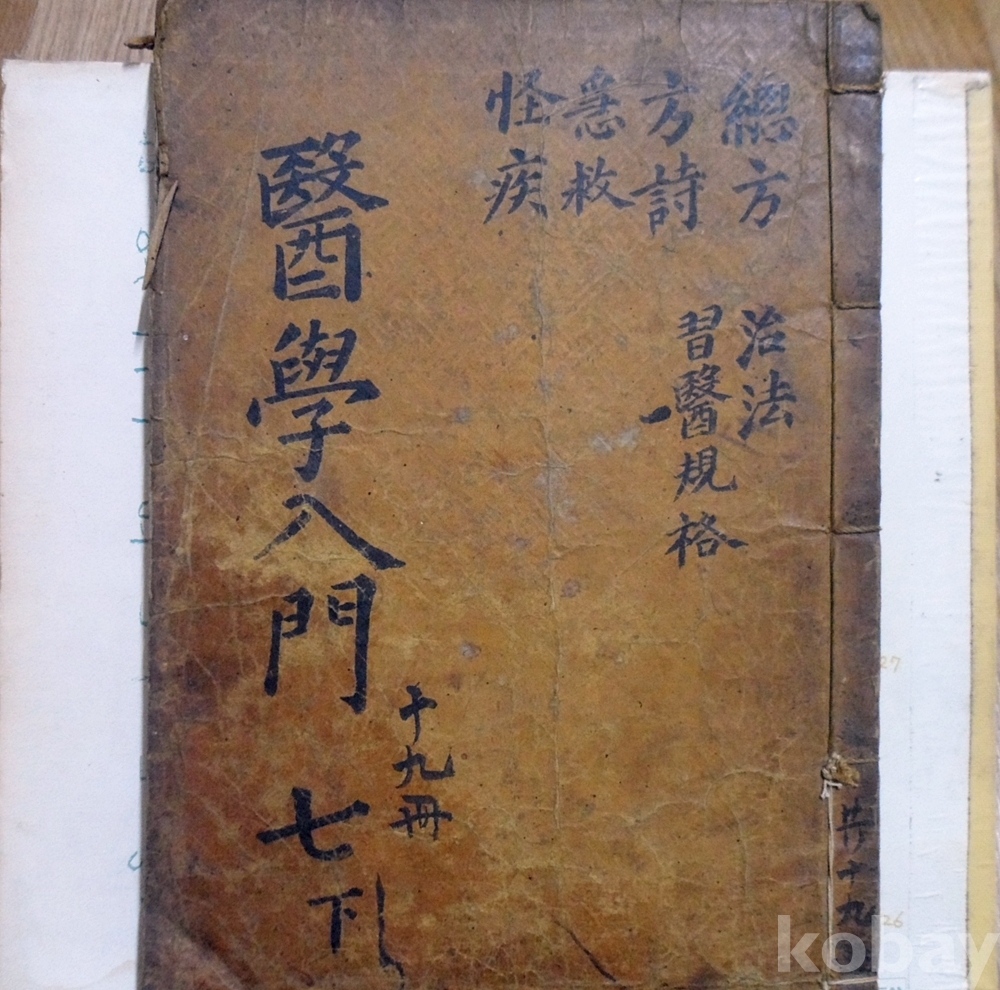 總方
方詩
急救
怪疾
治法
習醫規格
醫學入門 七
下
十九冊
共十九
27
26
kobay